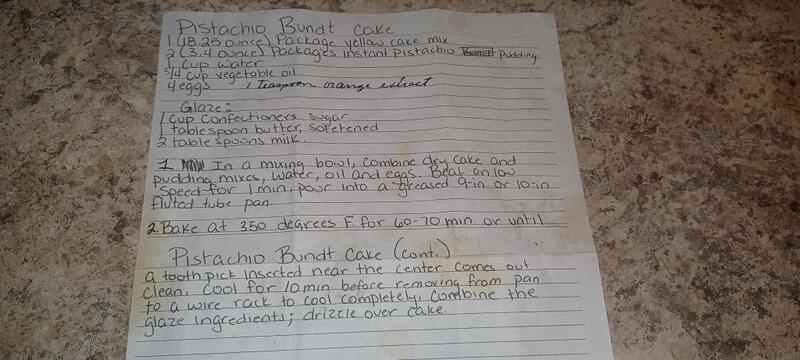 Pistachio Bundt Cake
1 (18.25 ounce) Package yellow cake mix
2 (3.4 ounce) Packages instant Pistachio pudding
1 cup water
3/4 cup vegetable oil
4 eggs 1 Teaspoon orange extract
Glaze:
1 cup confectioners sugar
1 tablespoon butter, sofetened
2 tablespoons milk.
1. In a mixing bowl, combine dry cake and
pudding mixes, water, oil and eggs. Beat on low
speed for 1 min, pour into a greased 9-in or 10-in
fluted tube pan.
2. Bake at 350 degrees F. for 60-70 min or until
Pistachio Bundt Cake (cont.)
a toothpick inserted near the center comes out
clean. Cool for 10 min before removing from pan
to a wire rack to cool completely. Combine the
glaze ingredients; drizzle over cake.